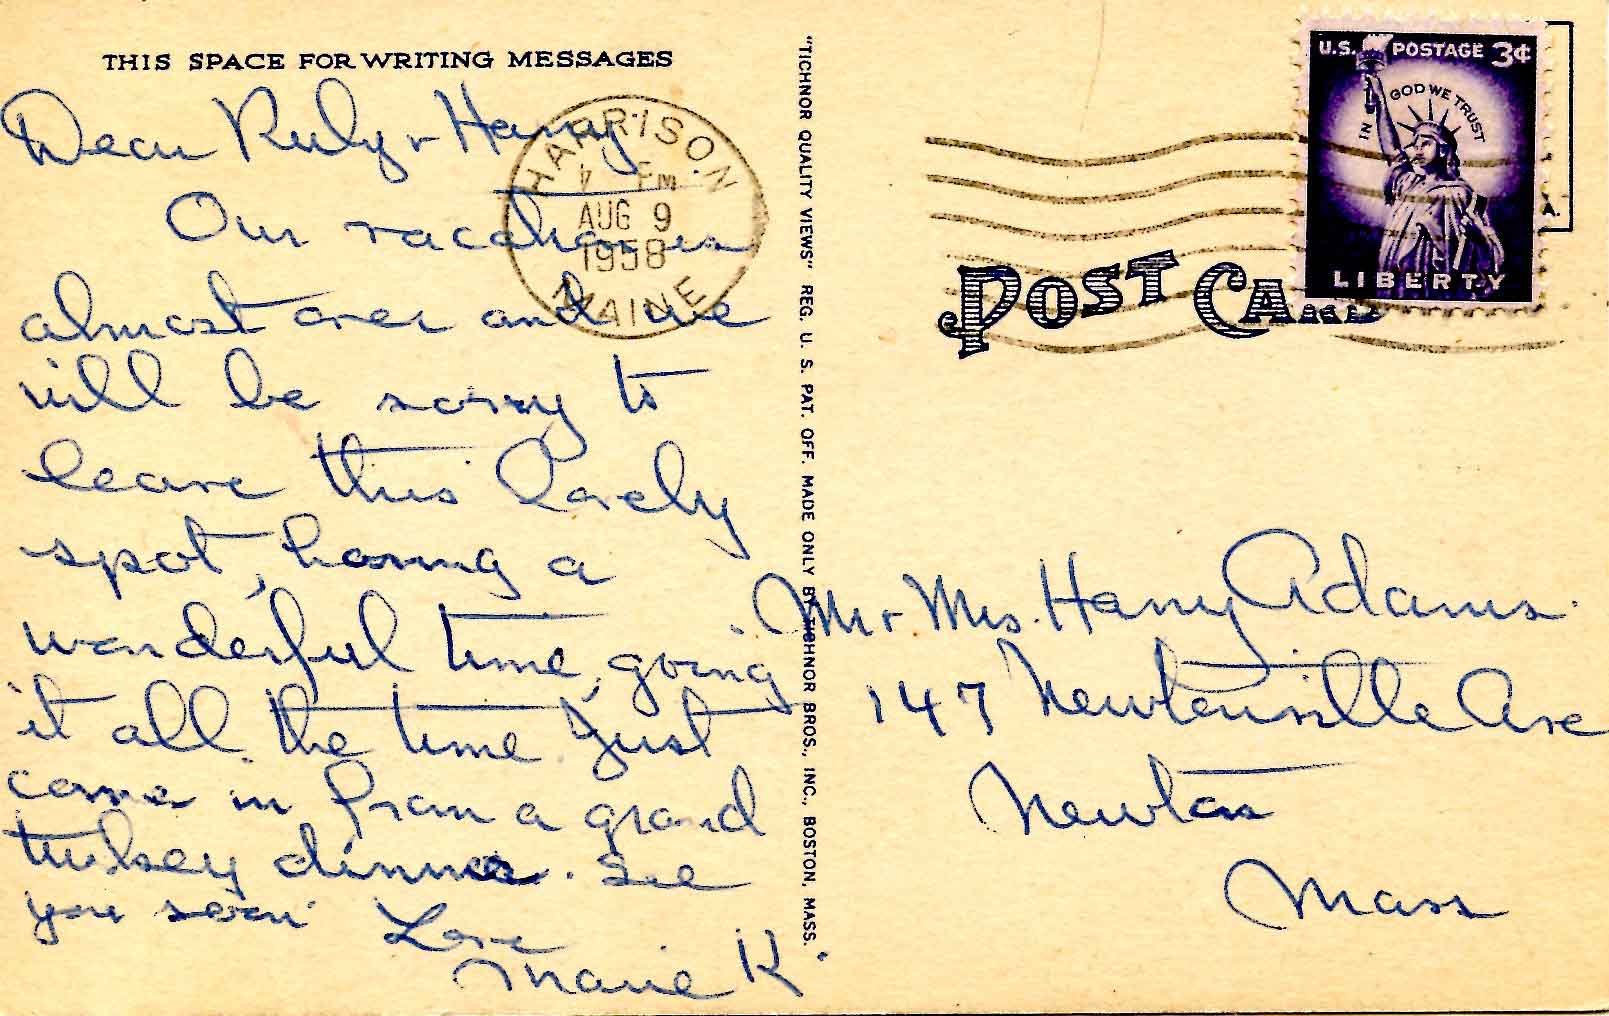 THIS SPACE FOR WRITING MESSAGES
Dear Ruby & Harry
Our vacation is
almost over and we
will be sorry to
leave this lovely
spot, having a
wonderful time, going
it all the time. Just
came in from a grand
turkey dinner. See
you soon
Love
Marie K.
HARRISON
PM
AUG 9
1958
MAINE
"TICHNOR QUALITY VIEWS" REG. U. S. PAT. OFF. MADE ONLY BY TICHNOR BROS., INC., BOSTON, MASS.
U.S. POSTAGE 3¢
IN GOD WE TRUST
LIBERTY
POST CARD
A.
Mr & Mrs. Harry Adams
147 Newtonville Ave
Newton
Mass